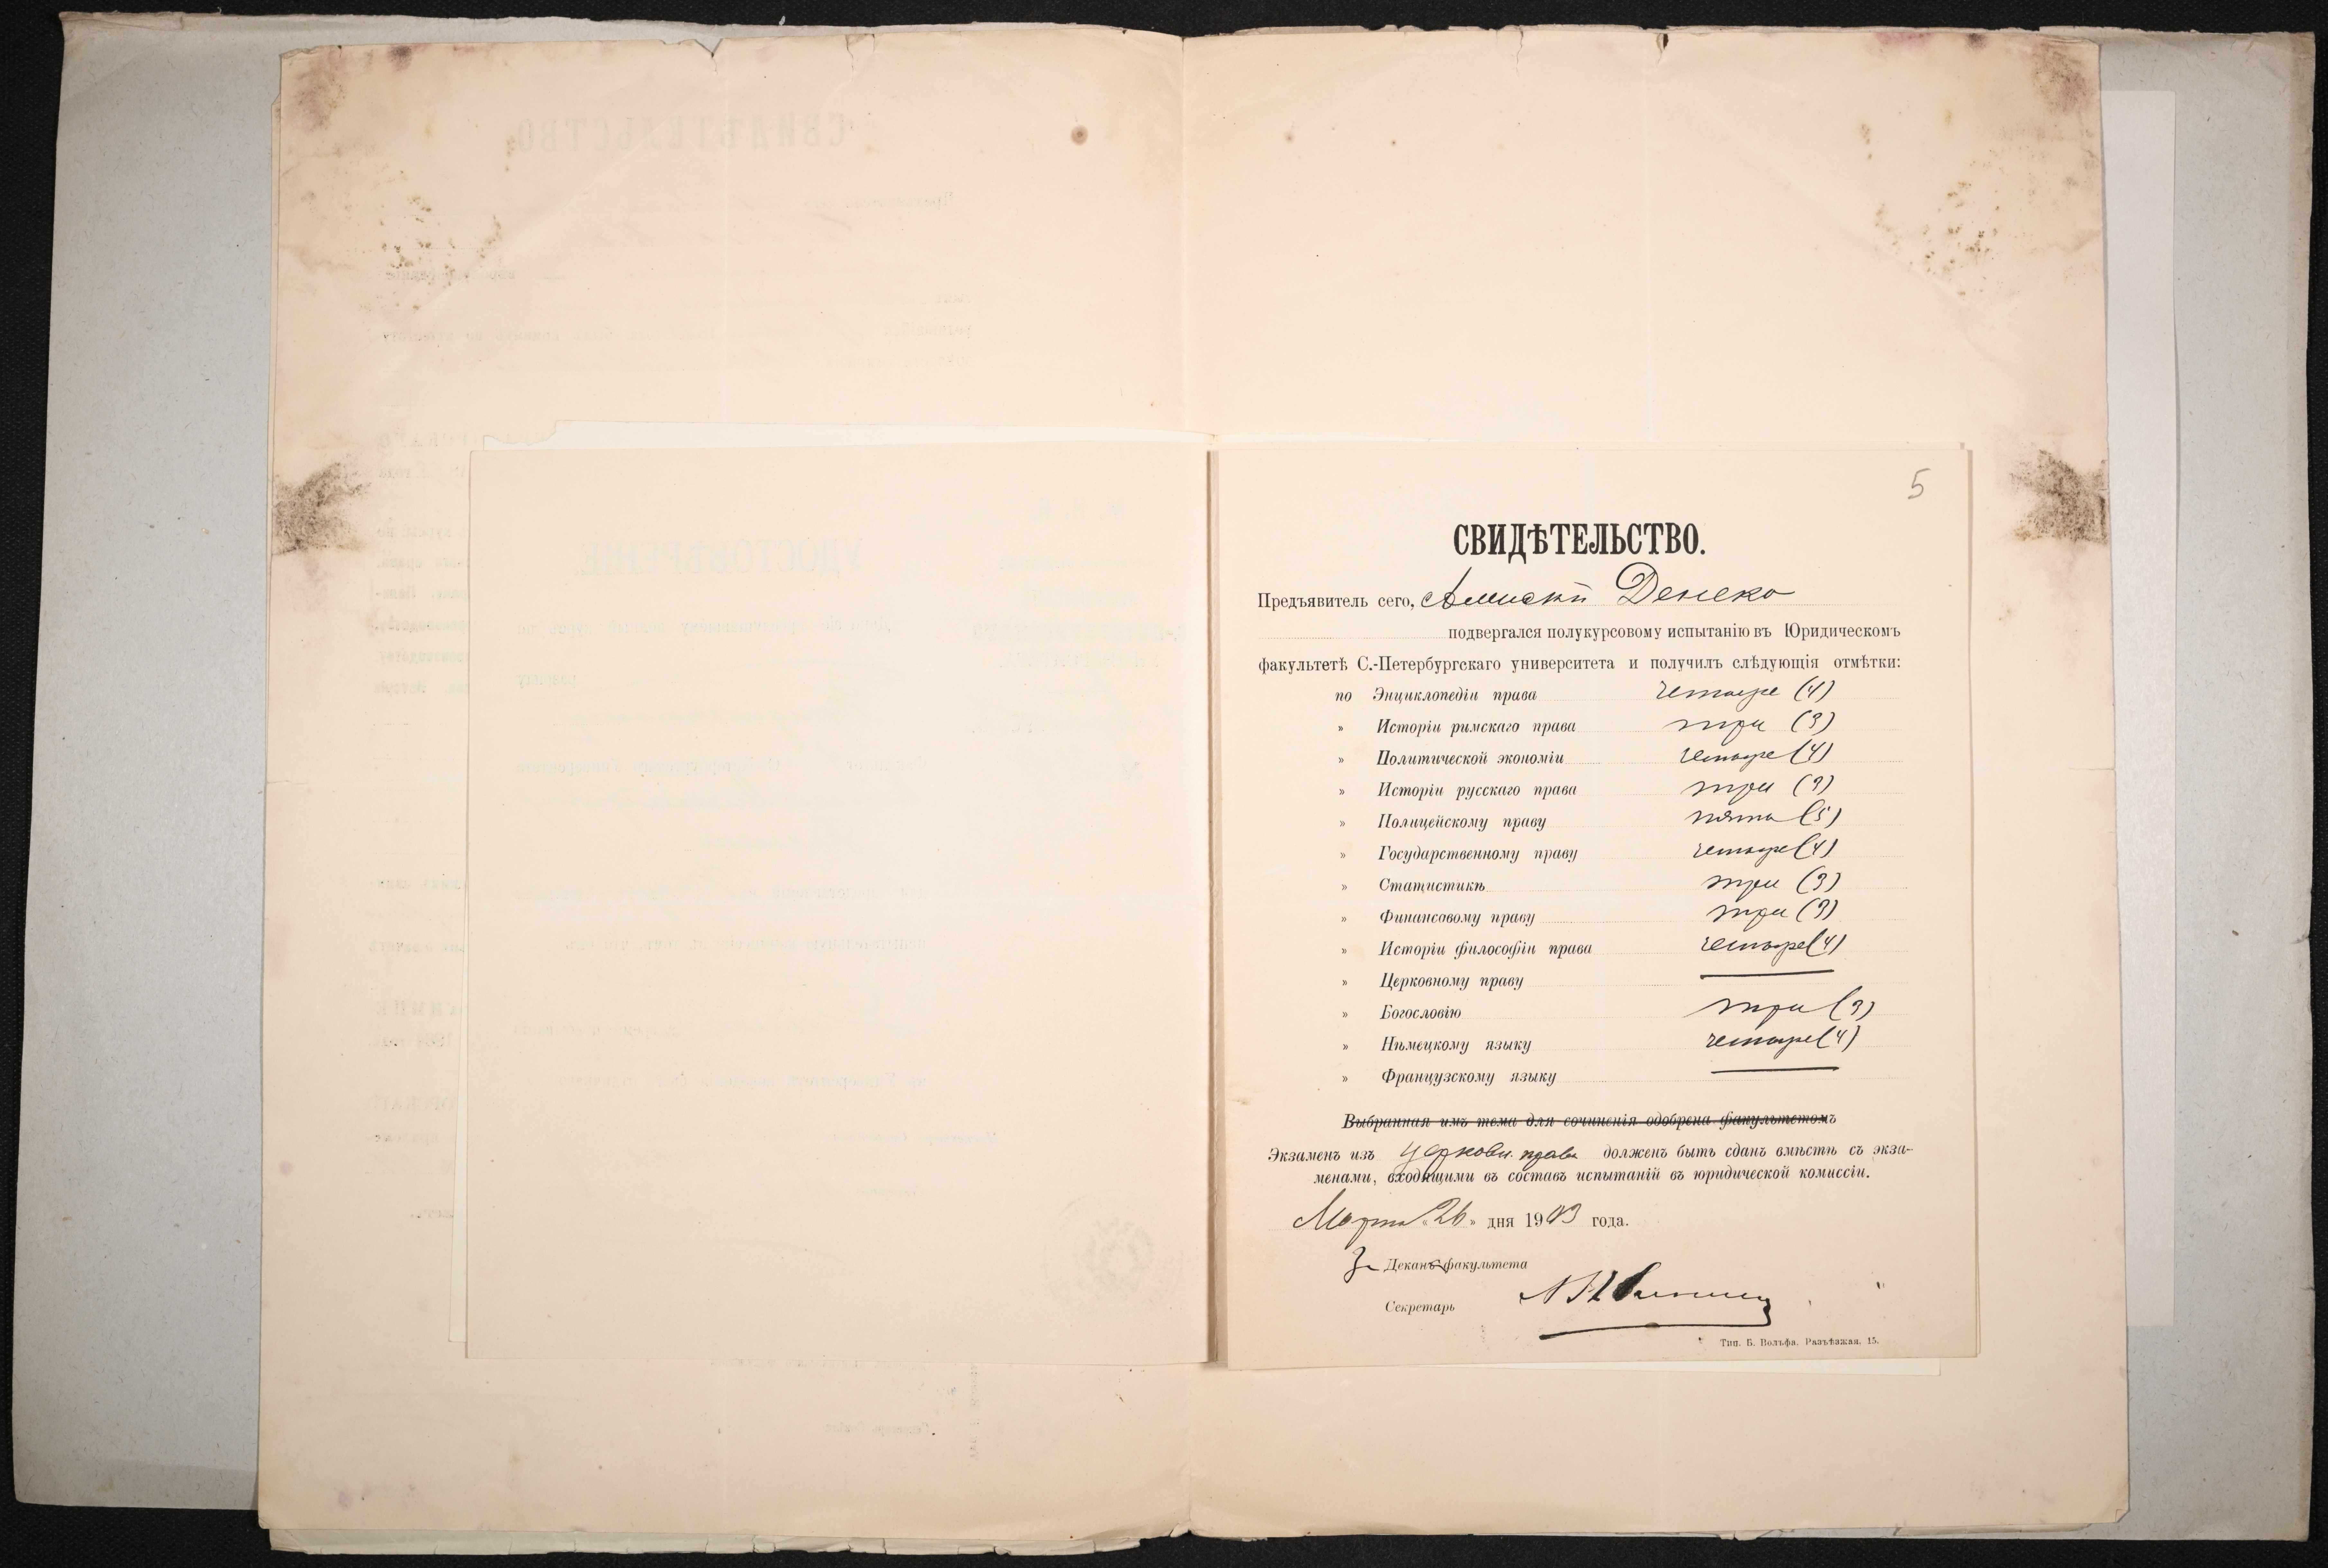 5
СВИДѢТЕЛЬСТВО.
Предъявитель сего, Денеко
подвергался полукурсовому испытанію въ Юридическомъ
факультетѣ С.-Петербургскаго университета и получилъ слѣдующія отмѣтки:
по Энциклопедіи права четыре (4)
» Исторіи римскаго права три (3)
» Политической экономіи четыре (4)
» Исторіи русскаго права три (3)
» Полицейскому праву пять (5)
» Государственному праву четыре (4)
» Статистикѣ три (3)
» Финансовому праву три (3)
» Исторіи философіи права четыре (4)
» Церковному праву
» Богословію три (3)
» Нѣмецкому языку четыре (4)
» Французскому языку
Выбранная имъ тема для сочиненія одобрена факультетомъ
Экзаменъ изъ церковн. права долженъ быть сданъ вмѣстѣ съ экза-
менами, входящими въ составъ испытаній въ юридической комиссіи.
Марта «26» дня 1903 года.
За Деканъ факультета
Секретарь
Тип. Б. Вольфа. Разъѣзжая, 15.